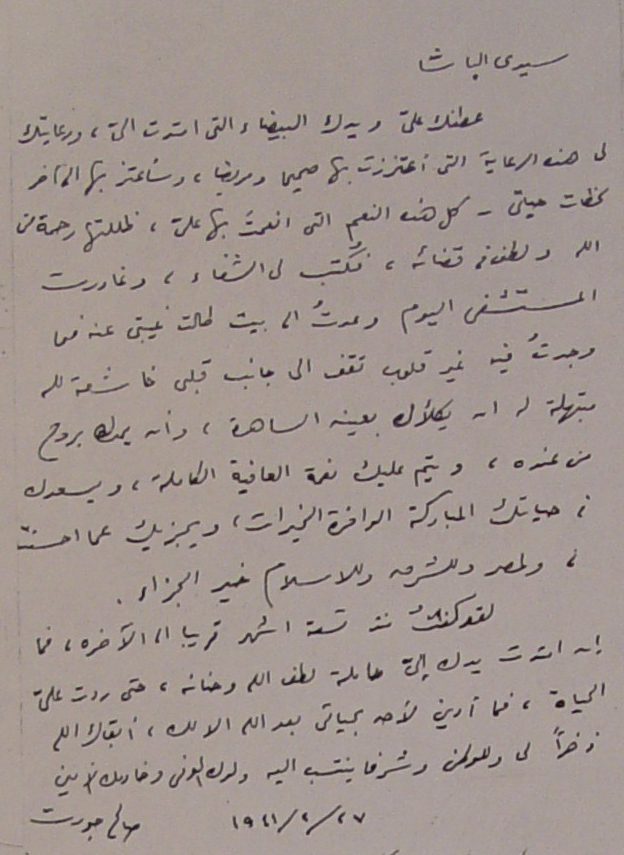 سيدى الباشا
عطفك علىّ ويدك البيضاء التى امتدت الىّ ، ورعايتك
لى هذه الرعاية التى أعتززت بها صحيحا ومريضا ، وسأعتز بها الى آخر
لحظات حياتى - كل هذه النعم التى انعمتَ بها علىّ ، ظللتها رحمة من
الله ولطف فى قضائه ، فكُتب لى الشفاء ، وغادرت
المستشفى اليوم وعدتُ الى بيت طالت غيبتى عنه فما
وجدتُ فيه غير قلوب تقف الى جانب قلبى خاشعة لله
مبتهلة له ان يكلأك بعينه الساهرة ، وأن يمدك بروح
من عنده ، ويتم عليك نعمة العافية الكاملة ، ويسعدك
فى حياتك المباركة الوافرة الخيرات ، ويجزيك عما احسنتَ
لى ولمصر وللشرق وللاسلام خير الجزاء .
لقد كنتُ منذ تسعة اشهر قريبا الى الآخرة ، فما
إن امتدت يدك إلىّ حاملة لطف الله وحنانه ، حتى ردت علىّ
الحياة ، فما أدين لأحد بحياتى بعد الله الا لك ، أبقاك الله
ذخراً لى وللوطن وشرفا ينتسب اليه ولدك الوفى وخادمك الأمين
صالح جودت
٢٧/٢/١٩٤١